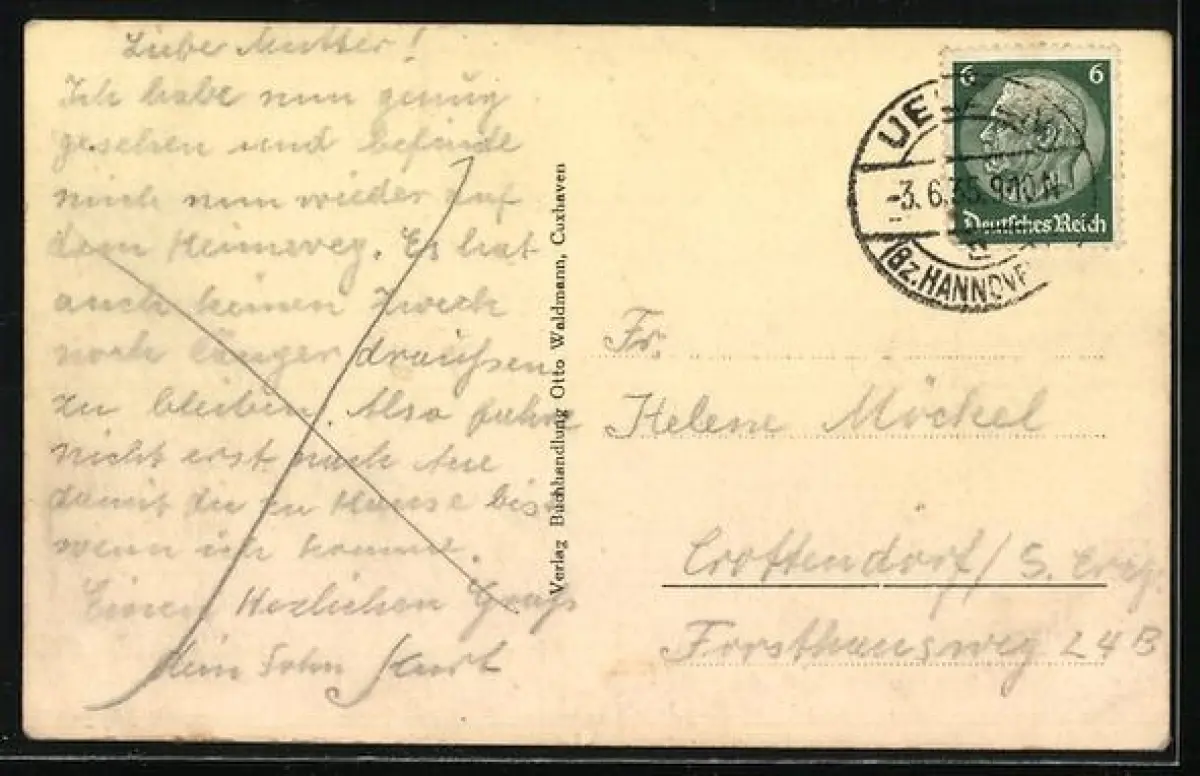 Liebe Mutter!
Ich habe nun genug
gesehen und befinde
mich nun wieder auf
dem Heimweg. Es hat
auch keinen Zweck
noch länger draußen
zu bleiben. Also fahre
nicht erst nach Aue
damit du zu Hause bist
wenn ich komme.
Einen Herzlichen Gruß
dein Sohn Kurt
Verlag Buchhandlung Otto Waldmann, Cuxhaven
6 6
Deutsches Reich
-3.6.35.9-10N
(Bz. HANNOVER
Fr.
Helene Möckel
Crottendorf/S. Erzg.
Forsthausweg 24B